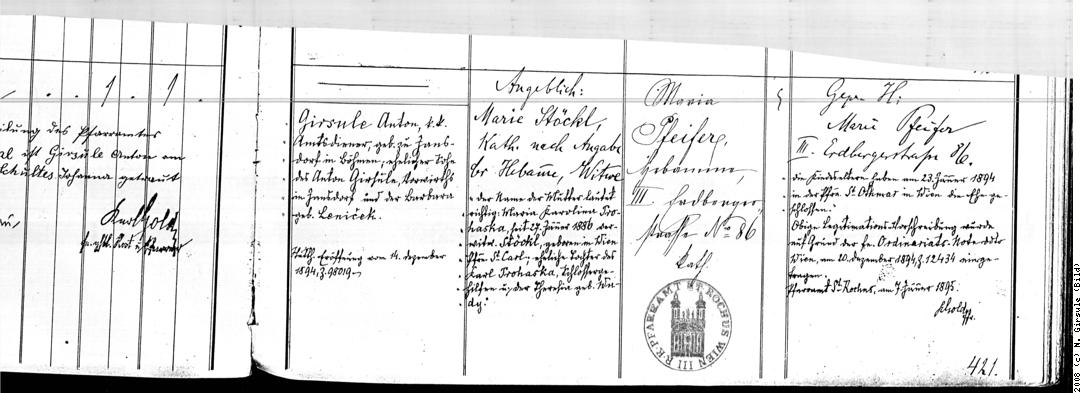 1. 1.
ilung des Pfarramtes
al ist Girsule Anton am
Schultes Johanna getraut
Karl Gold
Girsule Anton, k. k.
Amtsdiener, geb. zu Jans-
dorf in Böhmen, ehelicher Sohn
des Anton Girsule,
in Jansdorf und der Barbara
geb. Leniček.
Statth. Eröffnung vom 14. Dezember
1894, Z. 98019
Angeblich:
Marie Stöckl,
Kath. nach Angabe
der Hebamme, Witwe
der Name der Mutter lautet
richtig: Maria Karolina Pro-
haska, seit 27. Jänner 1886 ver-
witw. Stöckl, geboren in Wien
Pfr. St. Carl, eheliche Tochter des
Karl Prohaska, Schlosserge-
hilfen u. der Theresia geb. Win-
dy.
Maria
Pfeifer,
Hebamme,
III. Erdberger-
strasse No 86
kath.
R. K. PFARRAMT ST. ROCHUS WIEN III
Gepr. H:
Marie Pfeifer
III. Erdbergerstraße 86.
die Kindseltern haben am 23. Jänner 1894
in der Pfre St. Othmar in Wien die Ehe ge-
schlossen.
Obige Legitimations Vorschreibung wurde
auf Grund der fe. Ordinariats-Note ddto
Wien, am 20. Dezember 1894, Z. 12434 einge-
tragen.
Pfarramt St. Rochus, am 7. Jänner 1895.
421.
2008 (c) N. Girsule (Bild)